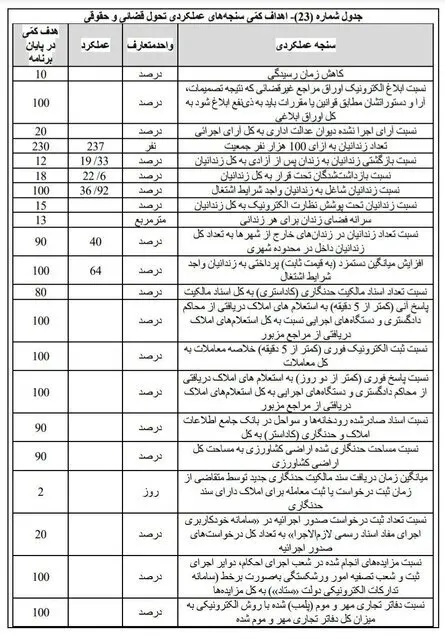 جدول شماره (23)- اهداف کمّی سنجه‌های عملکردی تحول قضائی و حقوقی
سنجه عملکردی واحدمتعارف عملکرد هدف کمّی
در پایان
برنامه
کاهش زمان رسیدگی درصد 10
نسبت ابلاغ الکترونیک اوراق مراجع غیرقضائی که نتیجه تصمیمات،
آرا و دستوراتشان مطابق قوانین یا مقررات باید به ذی‌نفع ابلاغ شود به
کل اوراق ابلاغی درصد 100
نسبت آرای اجرا نشده دیوان عدالت اداری به کل آرای اجرائی درصد 20
تعداد زندانیان به ازای 100 هزار نفر جمعیت نفر 237 230
نسبت بازگشتی زندانیان به زندان پس از آزادی به کل زندانیان درصد 19/33 12
نسبت بازداشت‌شدگان تحت قرار به کل زندانیان درصد 22/6 18
نسبت زندانیان شاغل به زندانیان واجد شرایط اشتغال درصد 36/92 100
نسبت زندانیان تحت پوشش نظارت الکترونیک به کل زندانیان درصد 15
سرانه فضای زندان برای هر زندانی مترمربع 13
نسبت تعداد زندانیان در زندان‌های خارج از شهرها به تعداد کل
زندانیان داخل در محدوده شهری درصد 40 90
افزایش میانگین دستمزد (به قیمت ثابت) پرداختی به زندانیان واجد
شرایط اشتغال درصد 64 100
نسبت تعداد اسناد مالکیت حدنگاری (کاداستری) به کل اسناد مالکیت درصد 80
پاسخ آنی (کمتر از 5 دقیقه) به استعلام های املاک دریافتی از محاکم
دادگستری و دستگاه‌های اجرایی نسبت به کل استعلام‌های املاک
دریافتی از مراجع مزبور درصد 100
نسبت ثبت الکترونیک فوری (کمتر از 5 دقیقه) خلاصه معاملات به
کل معاملات درصد 100
نسبت پاسخ فوری (کمتر از دو روز) به استعلام های املاک دریافتی
از محاکم دادگستری و دستگاه‌های اجرایی به کل استعلام‌های املاک
دریافتی از مراجع مزبور درصد 100
نسبت اسناد صادرشده رودخانه‌ها و سواحل در بانک جامع اطلاعات
املاک و حدنگاری (کاداستر) به کل درصد 90
نسبت مساحت حدنگاری شده اراضی کشاورزی به مساحت کل
اراضی کشاورزی درصد 90
میانگین زمان دریافت سند مالکیت حدنگاری جدید توسط متقاضی از
زمان ثبت درخواست یا ثبت معامله برای املاک دارای سند
حدنگاری روز 2
نسبت تعداد ثبت درخواست صدور اجرائیه در «سامانه خودکاربری
اجرای مفاد اسناد رسمی لازم‌الاجرا» به تعداد کل درخواست‌های
صدور اجرائیه درصد 20
نسبت مزایده‌های انجام شده در شعب اجرای احکام، دوایر اجرای
ثبت و شعب تصفیه امور ورشکستگی به‌صورت برخط (سامانه
تدارکات الکترونیکی دولت «ستاد») به کل مزایده‌ها درصد 100
نسبت دفاتر تجاری مهر و موم (پلمب) شده با روش الکترونیکی به
میزان کل دفاتر تجاری مهر و موم شده درصد 100